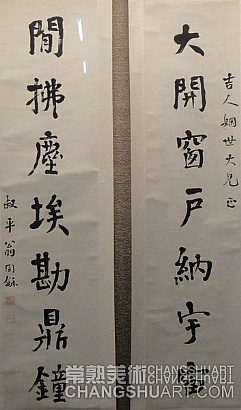 大開窗戶納宇宙
吉人姻世大兄正
閒拂塵埃勘鼎鐘
叔平翁同龢
常熟美術 CHANGSHUART
CHANGSHUART.COM